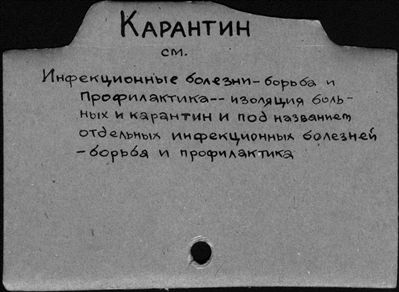 КАРАНТИН
см.
Инфекционные болезни-борьба и
профилактика--изоляция боль-
ных и карантин и под названием
отдельных инфекционных болезней
-борьба и профилактика